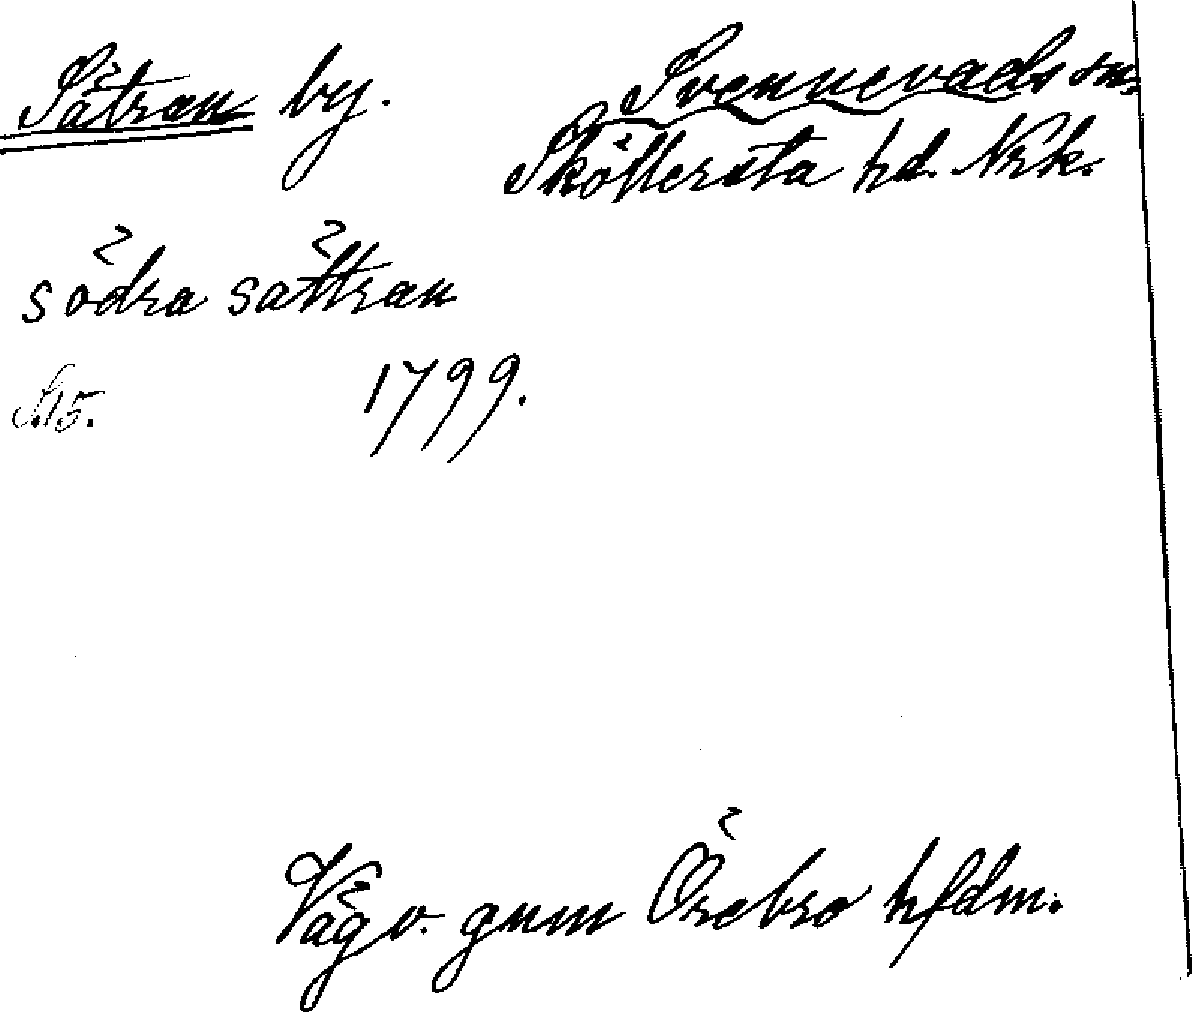 Sätran by. Svennevads sn.
Sköllersta hd. Nrk.
södra sättran
1799.
Vägv. gnm Örebro hfdm.